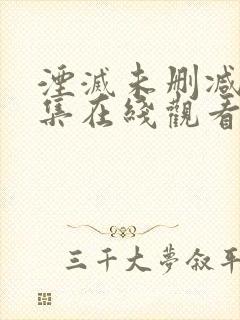 湮滅未删减
集在綫觀看
三千大夢叙平